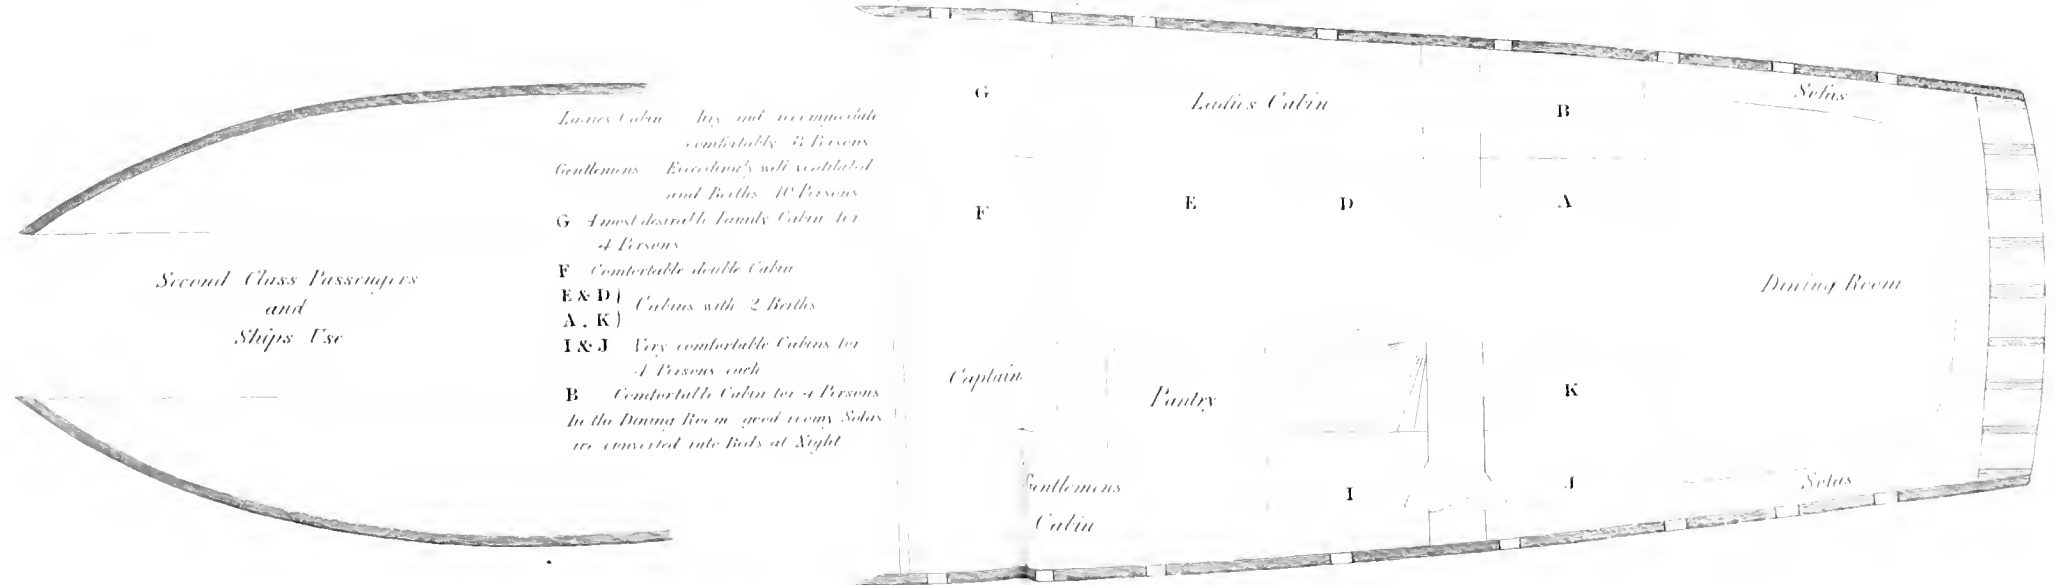 Second Class Passengers
and
Ships Use
Ladies Cabin Airy and accommodate
comfortably 8 Persons
Gentlemens Exceedingly well ventilated
and Berths 10 Persons
G A most desirable Family Cabin for
4 Persons
F Comfortable double Cabin
E & D
A . K } Cabins with 2 Berths
I & J Very comfortable Cabins for
4 Persons each
B Comfortable Cabin for 4 Persons
In the Dining Room good roomy Sofas
are converted into Beds at Night
G
Ladies Cabin
B
Sofas
F
E
D
A
Dining Room
Captain
Pantry
K
Gentlemens
Cabin
I
J
Sofas